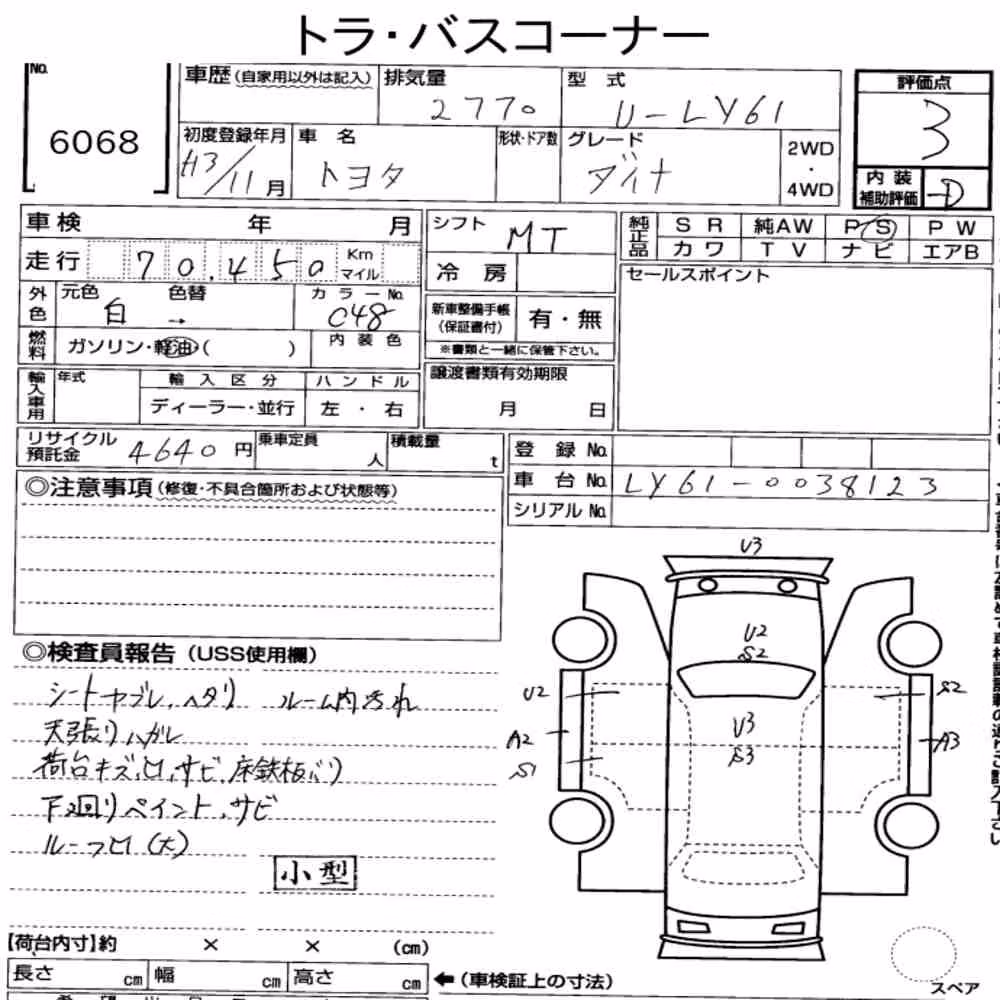 トラ・バスコーナー
No. 6068
車歴(自家用以外は記入) 排気量 2770 型式 U-LY61
評価点 3
初度登録年月 H3/11月 車名 トヨタ 形状・ドア数 グレード ダイナ 2WD・4WD
内装補助評価 D
車検 年 月
走行 70,450 Km マイル
外色 元色 白 色替 → カラーNo. 048
燃料 ガソリン・軽油・( ) 内装色
輸入車用 年式 輸入区分 ディーラー・並行 ハンドル 左・右
シフト MT
冷房
新車整備手帳(保証書付) 有・無
※書類と一緒に保管下さい。
譲渡書類有効期限
月 日
純正品 SR 純AW PS PW
カワ TV ナビ エアB
セールスポイント
リサイクル預託金 4640円 乗車定員 人 積載量 t
登録No.
車台No. LY61-0038123
シリアルNo.
◎注意事項(修復・不具合箇所および状態等)
◎検査員報告(USS使用欄)
シートヤブレ、ヘタリ ルーム内汚れ
天張りハガレ
荷台キズ、凹、サビ、床鉄板バリ
下廻りペイント、サビ
ルーフ凹(大)
小型
U3
U2
S2
U2
S2
U3
S3
A2
A3
S1
【荷台内寸】約 × × (cm)
長さ cm 幅 cm 高さ cm ←(車検証上の寸法)
スペア